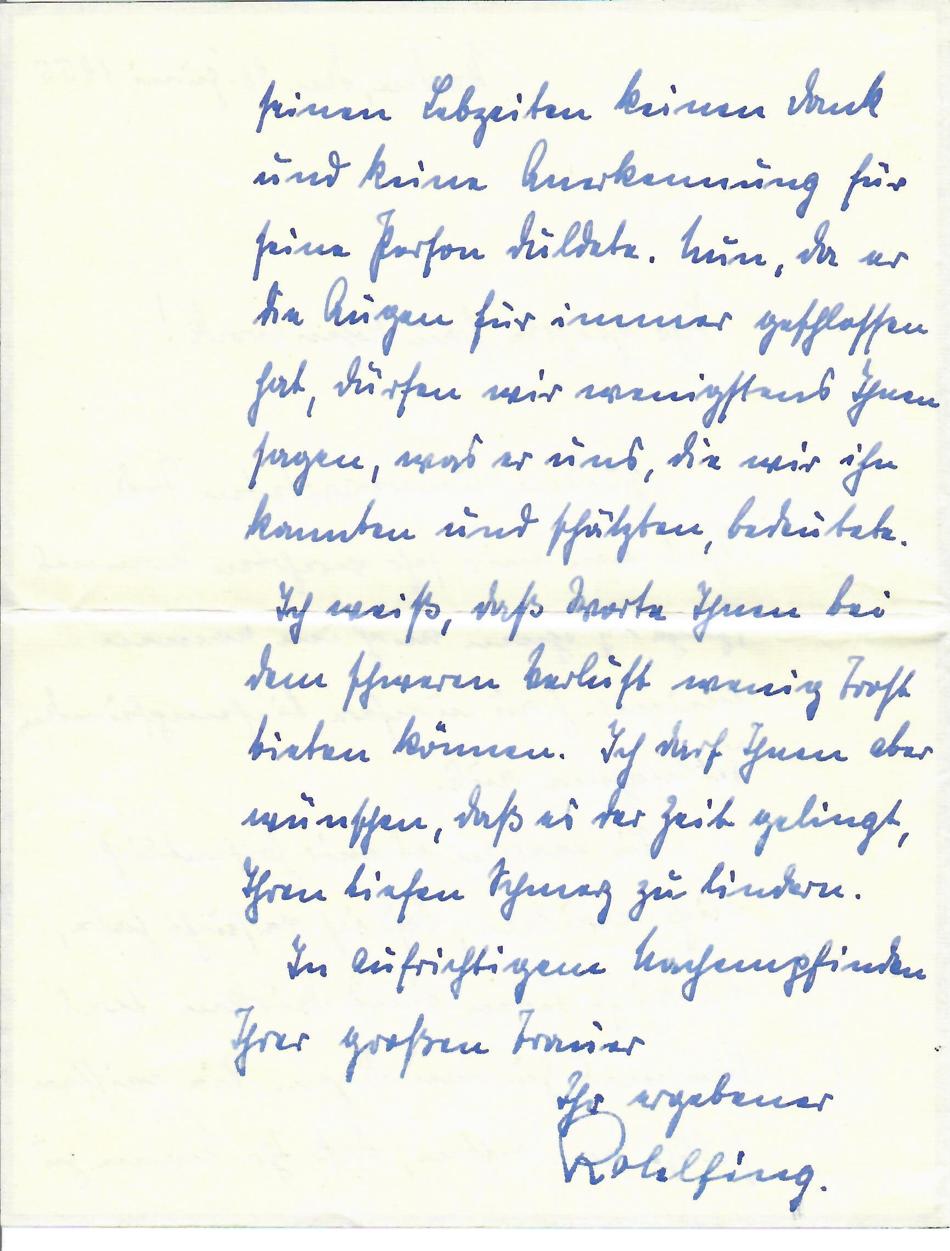 seinen Lebzeiten keinen Dank
und keine Anerkennung für
seine Person duldete. Nun, da er
die Augen für immer geschlossen
hat, dürfen wir wenigstens Ihnen
sagen, was er uns, die wir ihn
kannten und schätzten, bedeutete.
Ich weiß, daß Worte Ihnen bei
dem schweren Verlust wenig Trost
bieten können. Ich darf Ihnen aber
wünschen, daß es der Zeit gelingt,
Ihren tiefen Schmerz zu lindern.
In aufrichtigem Nachempfinden
Ihrer großen Trauer
Ihr ergebener
Rohlfing.